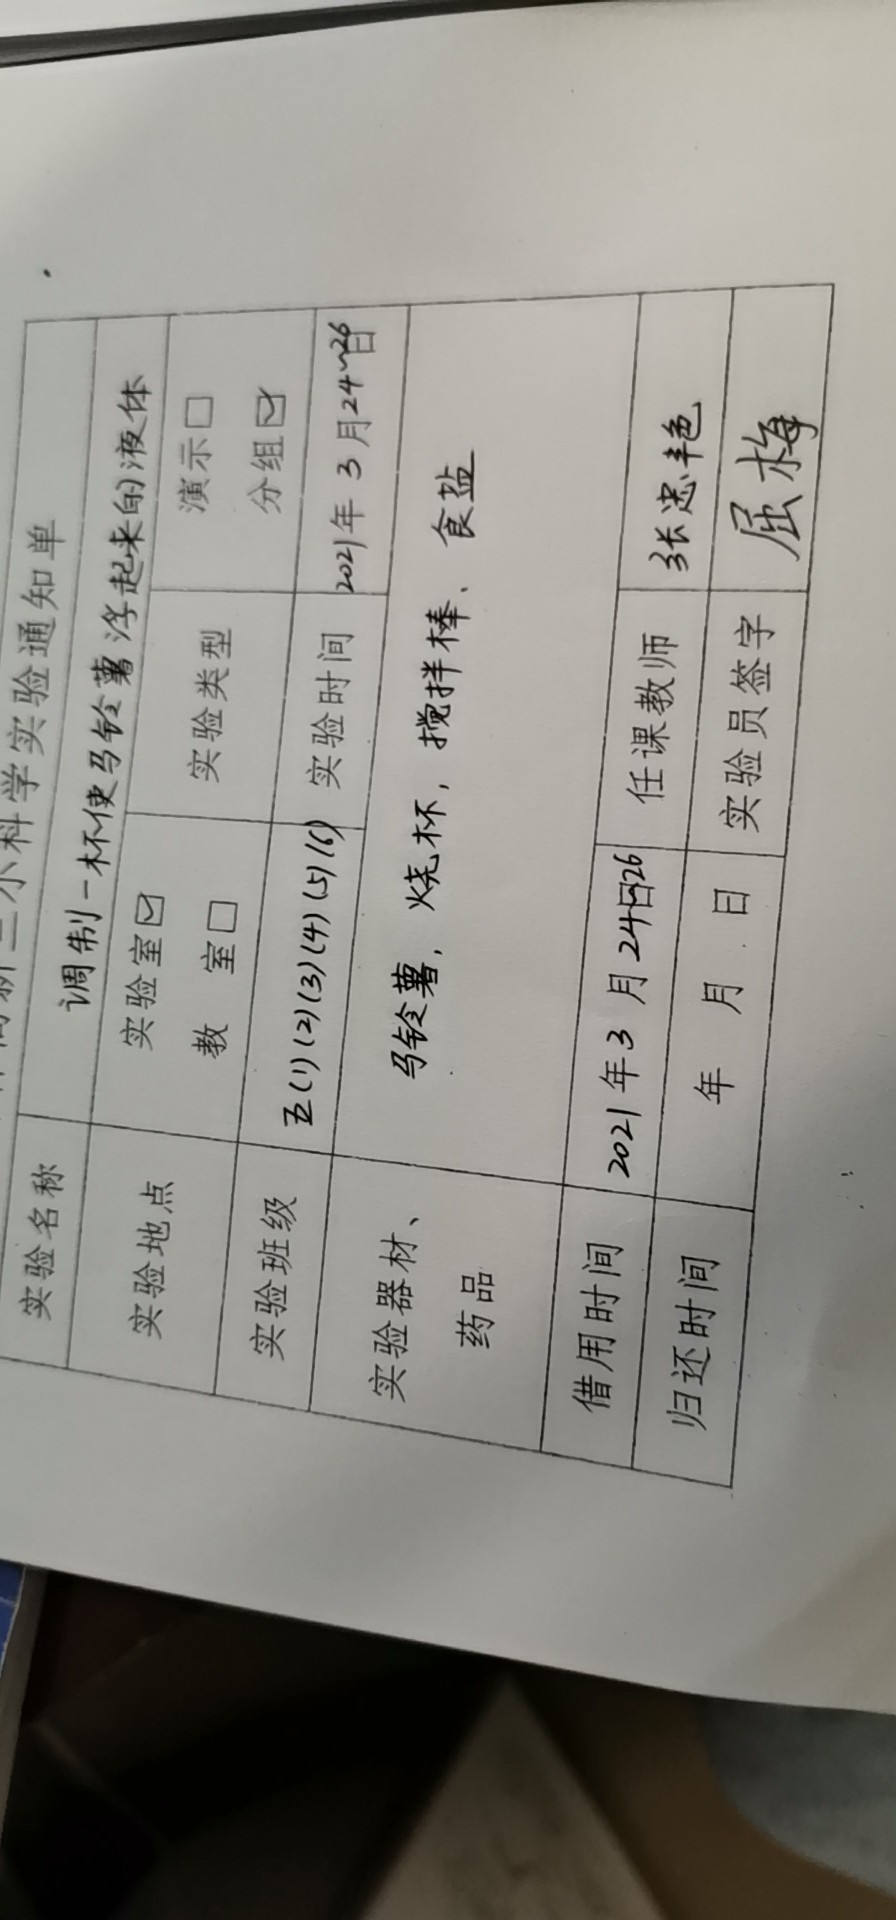 小科学实验通知单
实验名称 调制一杯使马铃薯浮起来的液体
实验地点 实验室☑ 教 室□ 实验类型 演示□ 分组☑
实验班级 五(1)(2)(3)(4)(5)(6) 实验时间 2021年 3 月24~26日
实验器材、药品 马铃薯，烧杯，搅拌棒、食盐
借用时间 2021 年 3 月 24日~26 任课教师 张忠艳
归还时间 年 月 日 实验员签字 屈梅